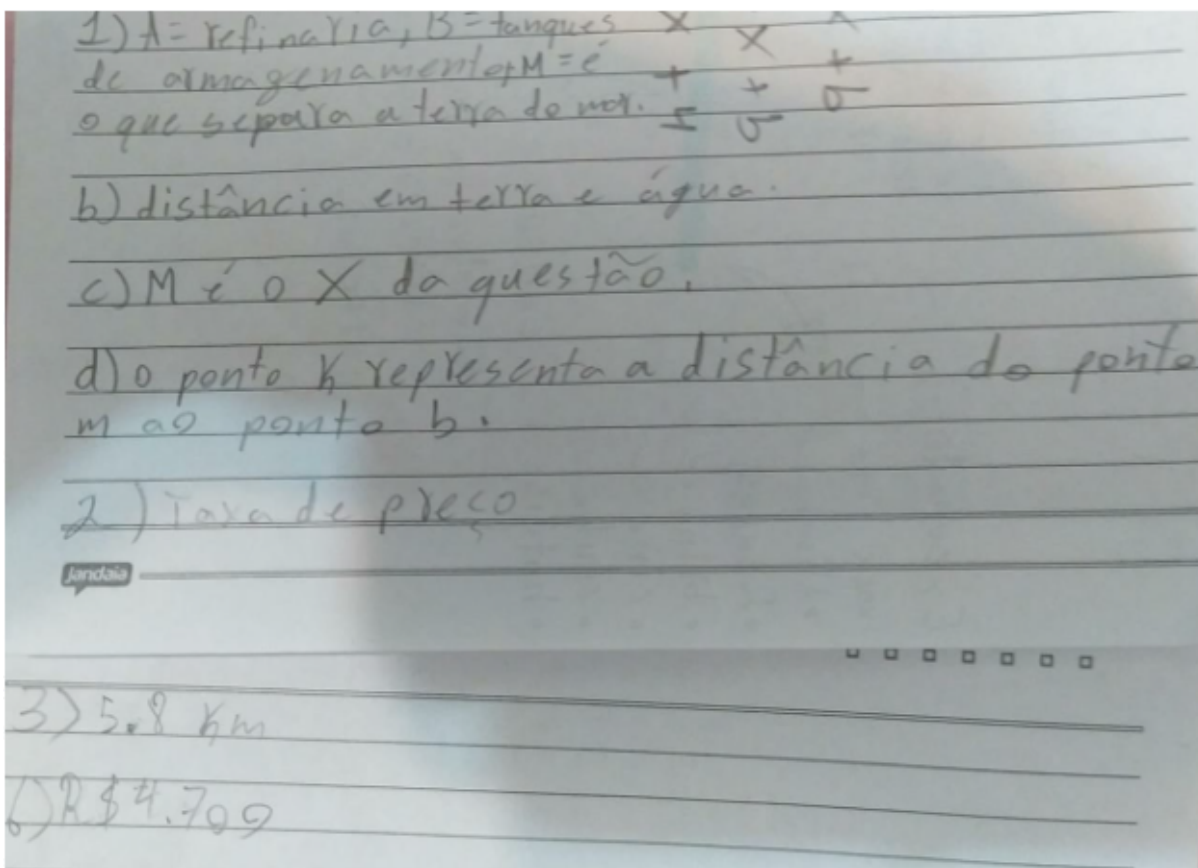 1) A = refinaria, B = tanques
de armagenamento, M = é
o que separa a terra do mar.
b) distância em terra e água.
c) M é o X da questão.
d) o ponto K representa a distância do ponto
m ao ponto b.
2) Taxa de preço
Jandaia
3) 5.8 km
R$ 4.700